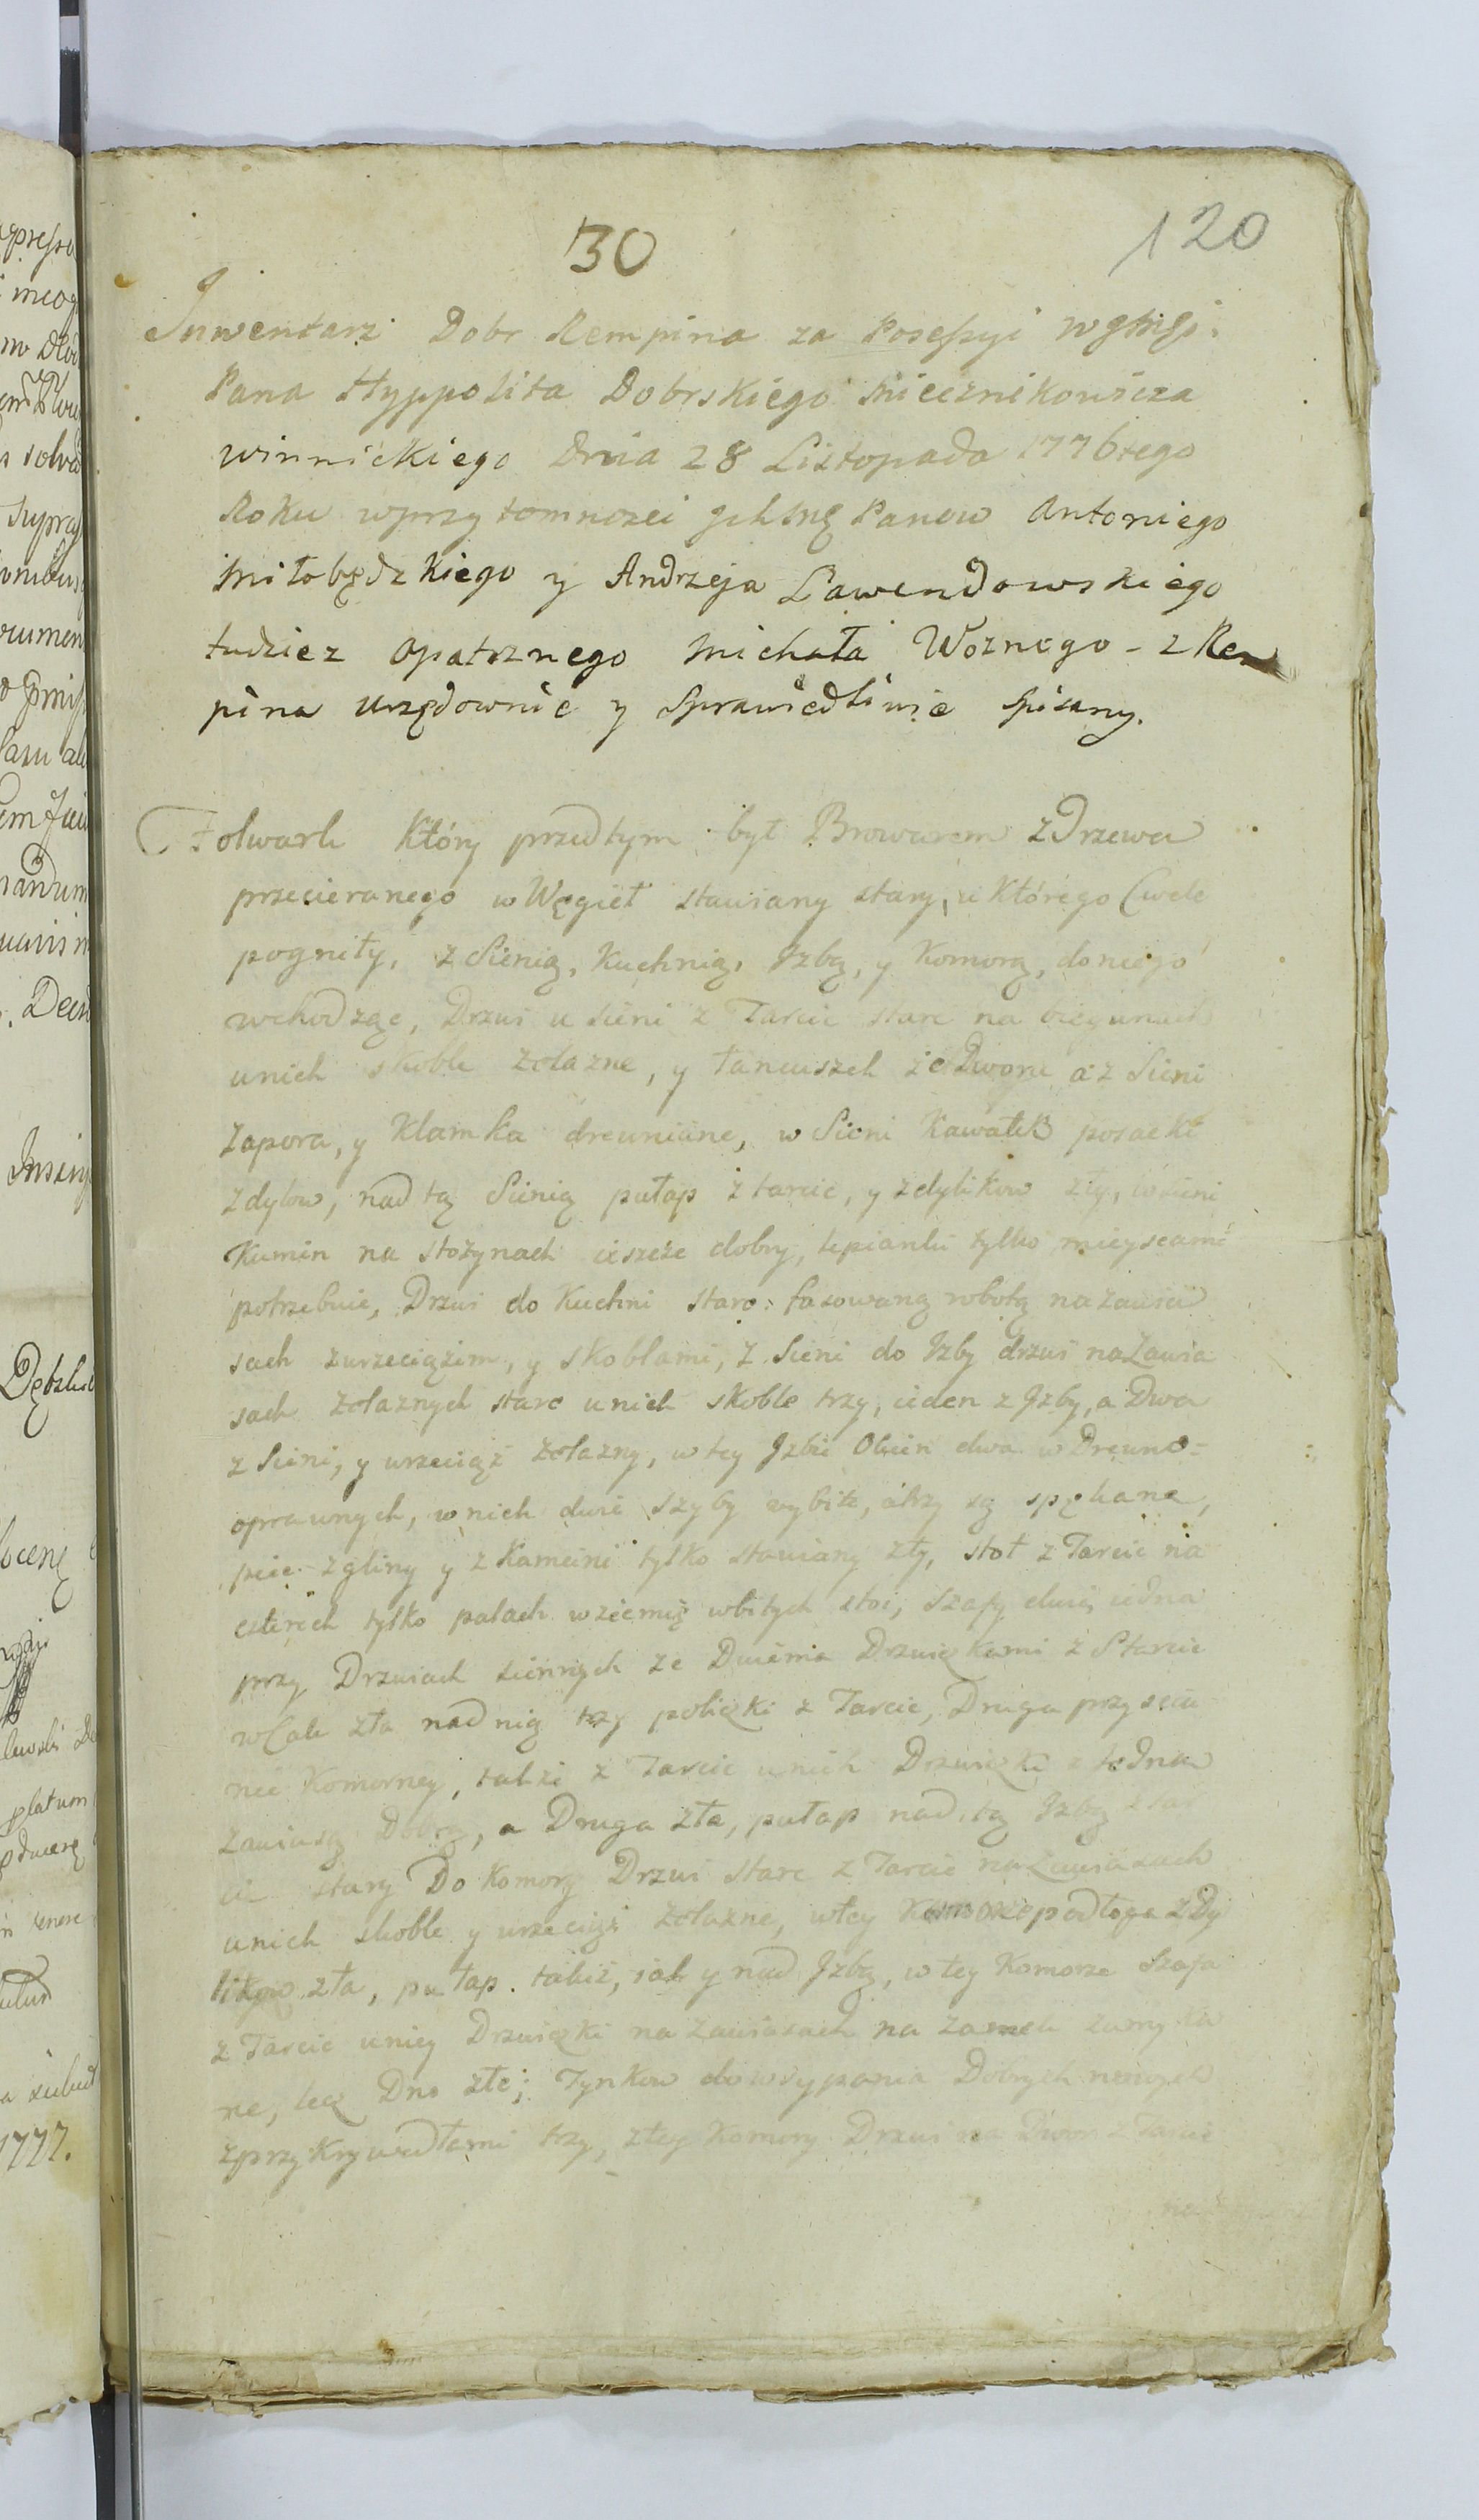 30
120
Inwentarz Dobr Rempina za Posessyi
Pana Hyppolita Dobrskiego Miecznikowicza
winnickiego Dnia 28 Listopada 1776tego
Roku wprzytomnozci Panow Antoniego
Miłobędzkiego y Andrzeja Lawendowskiego
tudziez opatrznego Michała Woznego - z Rem
pina urzędownie y sprawiedliwie spisany.
Folwark Który przedtym był Browarem z Drzewa
przecieranego w Węgieł stawiany stary, u Którego Cwele
pogniły, z Sienią, Kuchnią, Izbą, y Komorą, do niego
wchodząc, Drzwi u Sieni z Tarcic stare na biegunach
unich skoble żelazne, y łancuszek ze Dworu a z Sieni
Zapora, y Klamka drewniane, w Sieni Kawałek posacki
z dylow, nad tą Sienią pułap z tarcic, y z dylikow zły, w sieni
Kumin na stożynach ieszcze dobry, lepianki tylko mieyscami
potrzebuie, Drzwi do Kuchni stare fasowaną robotą na zawia
sach z wrzeciążem, y skoblami, z Sieni do Izby drzwi na Zawia
sach żelaznych stare u nich skoble trzy, ieden z Izby, a Dwa
z Sieni, y wrzeciąż żelazny, w tey Izbie Okien dwa w Drewno=
oprawnych, w nich dwie szyby wybite, a trzy są spękane,
piec z gliny y z Kamieni tylko stawiany zły, stoł z Tarcic na
czterech tylko palach w ziemię wbitych stoi, szafy dwie, iedna
przy Drzwiach siennych ze Dwiema Drzwiczkami z Starcic
wCale zła nad nią trzy policzki z Tarcic, Druga przy scia
nie Komorney, takze z Tarcic u nich Drzwiczki z iedną
zawiasą Dobrą, a Druga zła, pułap nad tą Izbą z tar
cic stary Do Komory Drzwi stare z Tarcic na Zawiasach
unich skoble y wrzeciąż żelazne, w tey Komorze podłoga z Dy
likow zła, pułap takiż, iak y nad Izbą, w tey Komorze Szafa
z Tarcic u niey Drzwiczki na Zawiasach na Zamek zamyka
ne, lecz Dno złe; Tynkow do wsypania Dobrych nowych
z przykrywadłami trzy, z tey Komory Drzwi na Dwor z Tarcic
na